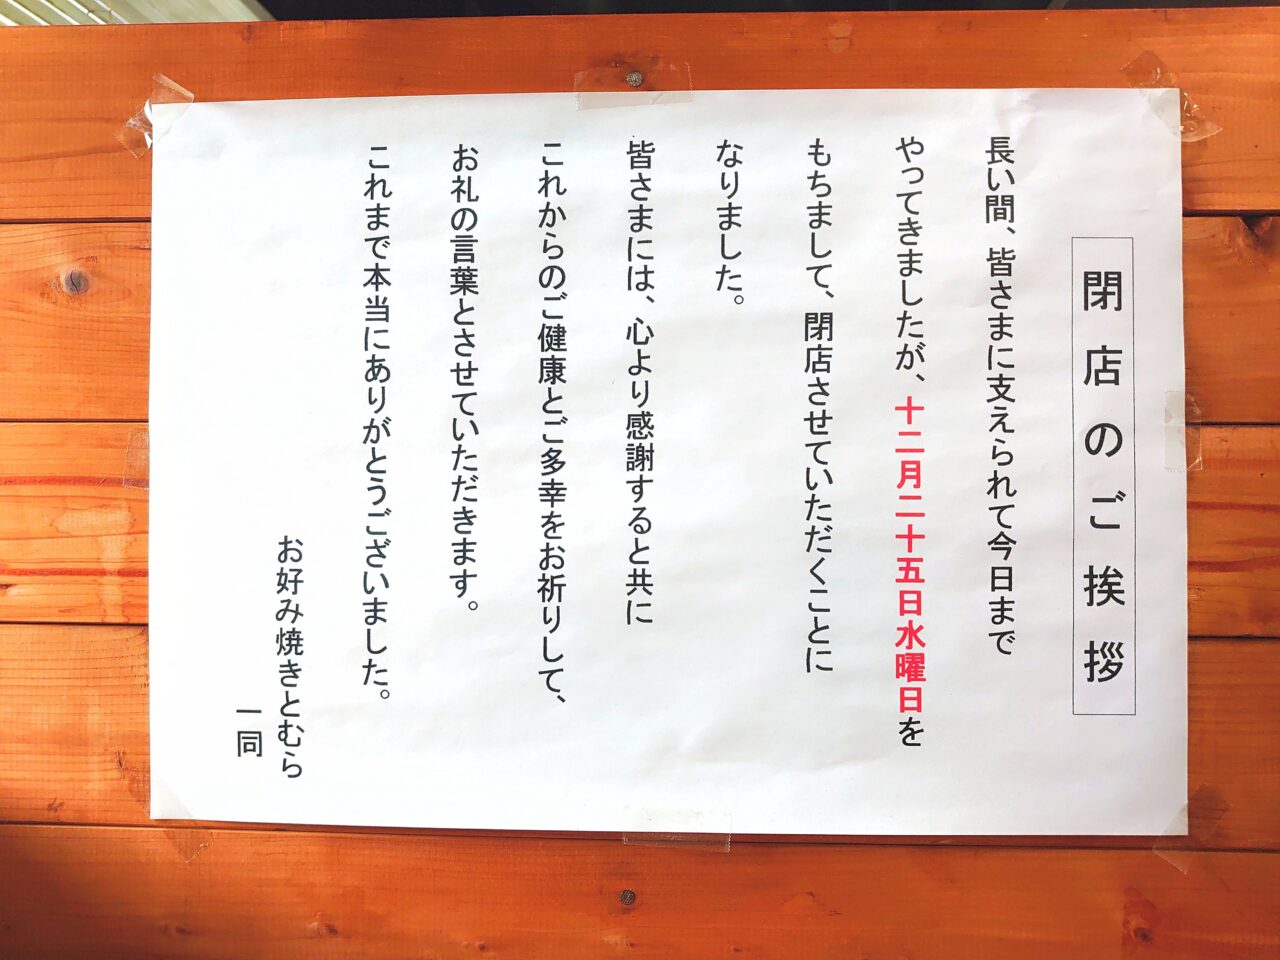 閉店のご挨拶
長い間、皆さまに支えられて今日まで
やってきましたが、十二月二十五日水曜日を
もちまして、閉店させていただくことに
なりました。
皆さまには、心より感謝すると共に
これからのご健康とご多幸をお祈りして、
お礼の言葉とさせていただきます。
これまで本当にありがとうございました。
お好み焼きとむら
一同